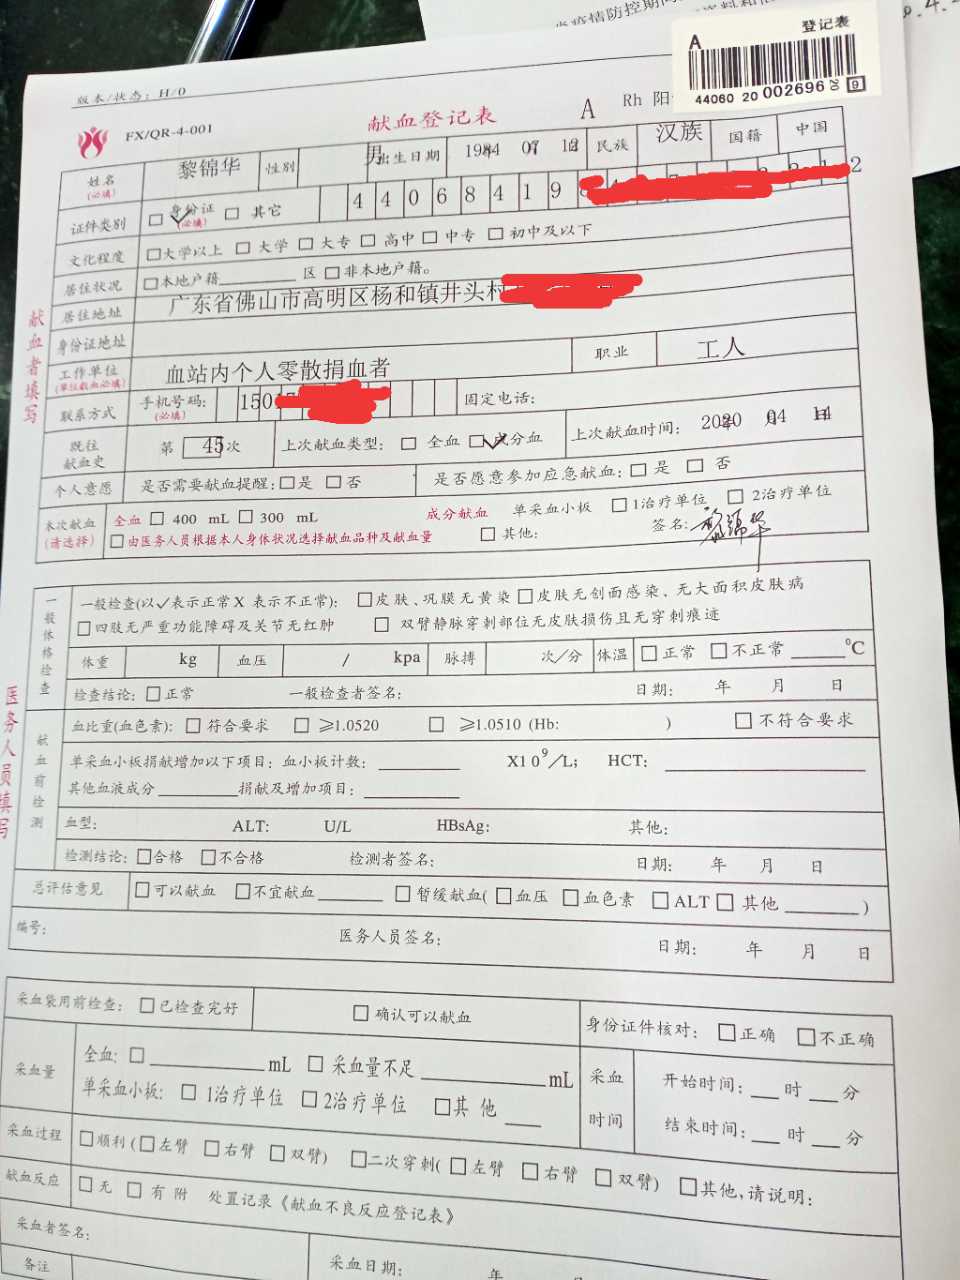 登记表
A
44060 20 002696 20 9
版本/状态：H/0
FX/QR-4-001
献血登记表 A Rh 阳
姓名(必填) 黎锦华 性别 男 出生日期 1984 07 12 民族 汉族 国籍 中国
证件类别 □身份证(必填) ✓ □ 其它 4 4 0 6 8 4 1 9 2
文化程度 □大学以上 □ 大学 □ 大专 □ 高中 □ 中专 □ 初中及以下
居住状况 □本地户籍 区 □非本地户籍。
居住地址 广东省佛山市高明区杨和镇井头村
身份证地址
工作单位(单位献血必填) 血站内个人零散捐血者 职业 工人
联系方式 手机号码：(必填) 150 固定电话：
既往献血史 第 45 次 上次献血类型：□ 全血 □✓成分血 上次献血时间：2020 04 14
个人意愿 是否需要献血提醒：□是 □ 否 是否愿意参加应急献血：□ 是 □ 否
本次献血(请选择) 全血 □ 400 mL □ 300 mL 成分献血 单采血小板 □ 1治疗单位 □ 2治疗单位
□由医务人员根据本人身体状况选择献血品种及献血量 □ 其他： 签名：黎锦华
献血者填写
一般体格检查
一般检查(以✓表示正常X 表示不正常)：□皮肤、巩膜无黄染 □皮肤无创面感染、无大面积皮肤病
□四肢无严重功能障碍及关节无红肿 □ 双臂静脉穿刺部位无皮肤损伤且无穿刺痕迹
体重 kg 血压 / kpa 脉搏 次/分 体温 □ 正常 □ 不正常 ℃
检查结论：□ 正常 一般检查者签名： 日期： 年 月 日
医务人员填写
献血前检测
血比重(血色素)：□ 符合要求 □ ≥1.0520 □ ≥1.0510 (Hb: ) □ 不符合要求
单采血小板捐献增加以下项目：血小板计数： X10⁹/L； HCT：
其他血液成分 捐献及增加项目：
血型： ALT: U/L HBsAg: 其他：
检测结论：□合格 □不合格 检测者签名： 日期： 年 月 日
总评估意见 □可以献血 □不宜献血 □ 暂缓献血( □ 血压 □ 血色素 □ALT □ 其他 )
编号： 医务人员签名： 日期： 年 月 日
采血袋用前检查：□ 已检查完好 □ 确认可以献血 身份证件核对：□ 正确 □ 不正确
采血量 全血：□ mL □ 采血量不足 mL 采血时间 开始时间： 时 分
单采血小板：□ 1治疗单位 □ 2治疗单位 □其 他 结束时间： 时 分
采血过程 □顺利(□左臂 □ 右臂 □ 双臂) □二次穿刺(□ 左臂 □ 右臂 □ 双臂) □其他，请说明：
献血反应 □ 无 □ 有 附 处置记录《献血不良反应登记表》
采血者签名： 采血日期： 年
备注